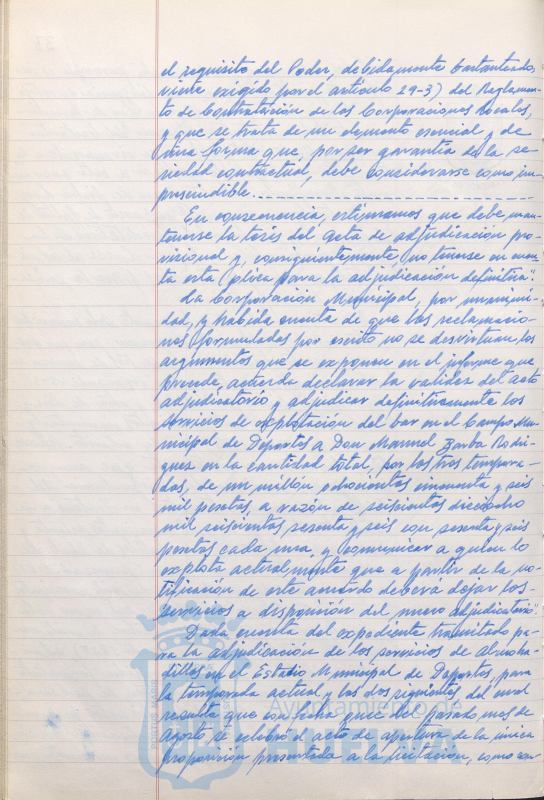 el requisito del Poder, debidamente bastanteado,
viene exigido por el artículo 29-3) del Reglamen-
to de Contratación de las Corporaciones Locales,
y que se trata de un elemento esencial y de
una forma que, por ser garantía de la se-
riedad contractual, debe considerarse como im-
prescindible.
En consecuencia, estimamos que debe man-
tenerse la tesis del acta de adjudicación pro-
visional y, consiguientemente, no tenerse en cuen-
ta esta plica para la adjudicación definitiva".
La Corporación Municipal, por unanimi-
dad, y habida cuenta de que las reclamacio-
nes formuladas por escrito no se desvirtuan los
argumentos que se exponen en el informe que
precede, acuerda declarar la validez del acto
adjudicatorio y adjudicar definitivamente los
servicios de explotación del bar en el Campo Mu-
nicipal de Deportes a Don Manuel Barba Rodrí-
guez en la cantidad total, por las tres tempora-
das, de un millón ochocientas cincuenta y seis
mil pesetas, a razón de seiscientas dieciocho
mil seiscientas sesenta y seis con sesenta y seis
pesetas cada una, y comunicar a quien lo
explota actualmente que a partir de la no-
tificación de este acuerdo deberá dejar los
servicios a disposición del nuevo adjudicatario"
Dada cuenta del expediente tramitado pa-
ra la adjudicación de los servicios de almoha-
dillas en el Estadio Municipal de Deportes, para
la temporada actual y las dos siguientes, del cual
resulta que con fecha que del pasado mes de
agosto, se celebró el acto de apertura de la única
proposición presentada a la licitación, como con-
Ayuntamiento de